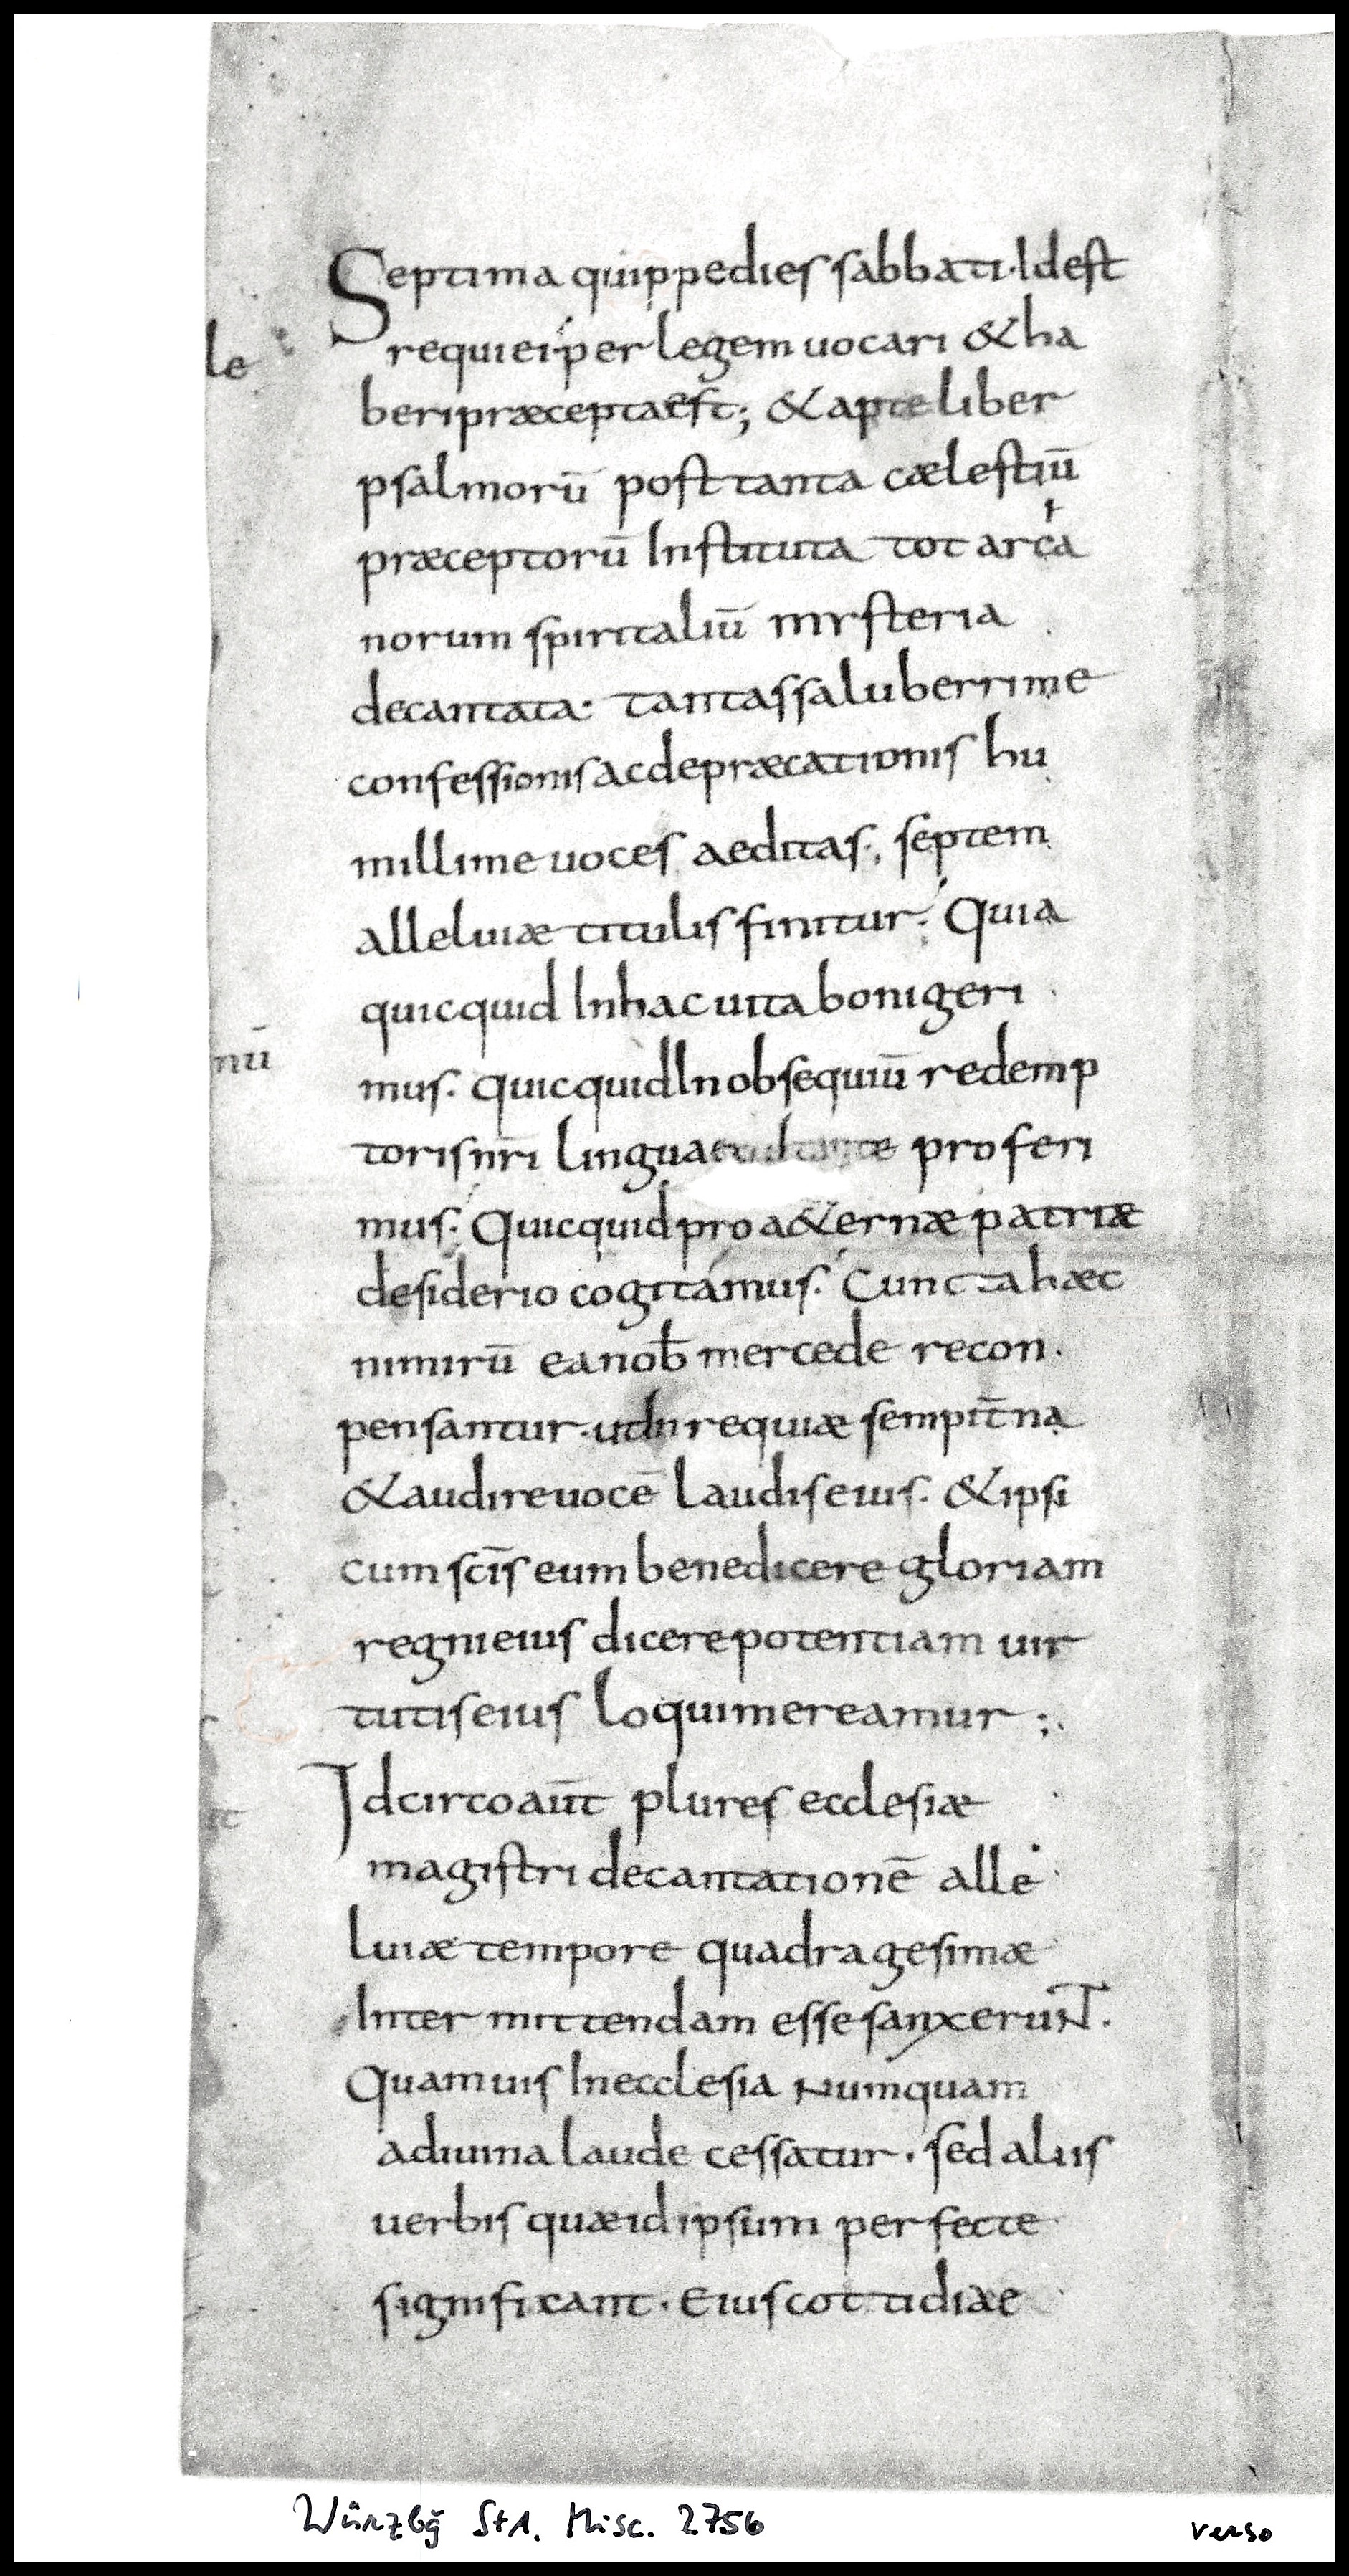 Septima quippe dies sabbati· Id est
requiei per legem uocari & ha
le
beri præcepta est; & apte liber
psalmorū post tanta cælestiū
præceptorū Instituta tot arca
norum spiritaliū mysteria
decantata· tantas saluberrime
confessionis ac depræcationis hu
millime uoces aeditas·, septem
alleluiæ titulis finitur· Quia
quicquid In hac uita boni geri
nū
mus· quicquid In obsequiū redemp
toris nr̄i lingua proferi
mus· Quicquid pro a&ernæ patriæ
desiderio cogitamus· Cuncta hæc
nimirū ea nob̄ mercede recon·
pensantur· ut In requiæ sempit̄na
& audire uocē laudis eius· & ipsi
cum sc̄is eum benedicere gloriam
regni eius dicere potentiam uir
tutis eius loqui mereamur ;·
Idcirco aūt plures ecclesiæ
magistri decantationē alle
luiæ tempore quadragesimæ
Intermittendam esse sanxeruNT·
Quamuis In ecclesia Numquam
a diuina laude cessatur· sed aliis
uerbis quæ id ipsum perfecte
significant· Eius cottidiae
Würzbg StA. Misc. 2756
verso